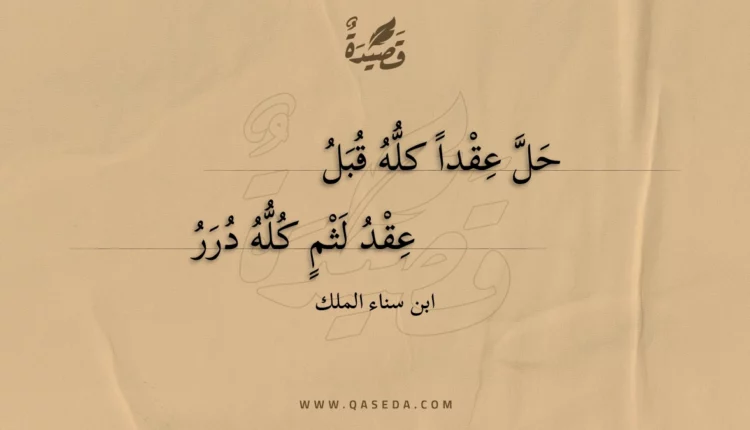 قَصِيْدَةٌ
حَلَّ عِقْداً كلُّهُ قُبَلُ
عِقْدُ لَثْمٍ كُلُّهُ دُرَرُ
ابن سناء الملك
WWW.QASEDA.COM